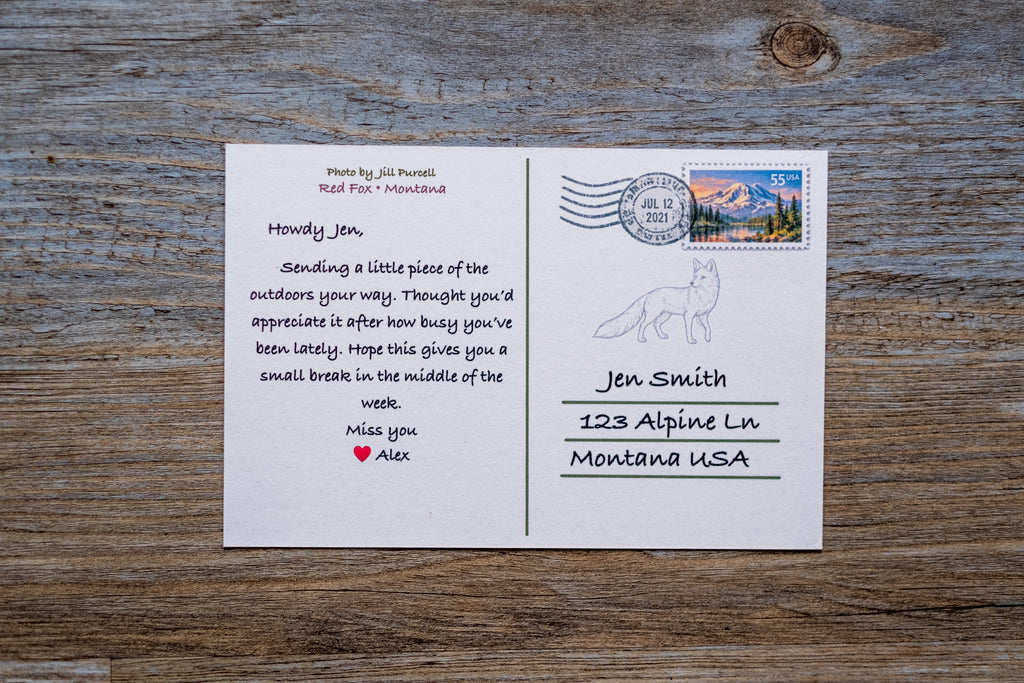 Photo by Jill Purcell
Red Fox • Montana
Howdy Jen,
Sending a little piece of the
outdoors your way. Thought you'd
appreciate it after how busy you've
been lately. Hope this gives you a
small break in the middle of the
week.
Miss you
❤ Alex
JUL 12
2021
55 USA
Jen Smith
123 Alpine Ln
Montana USA